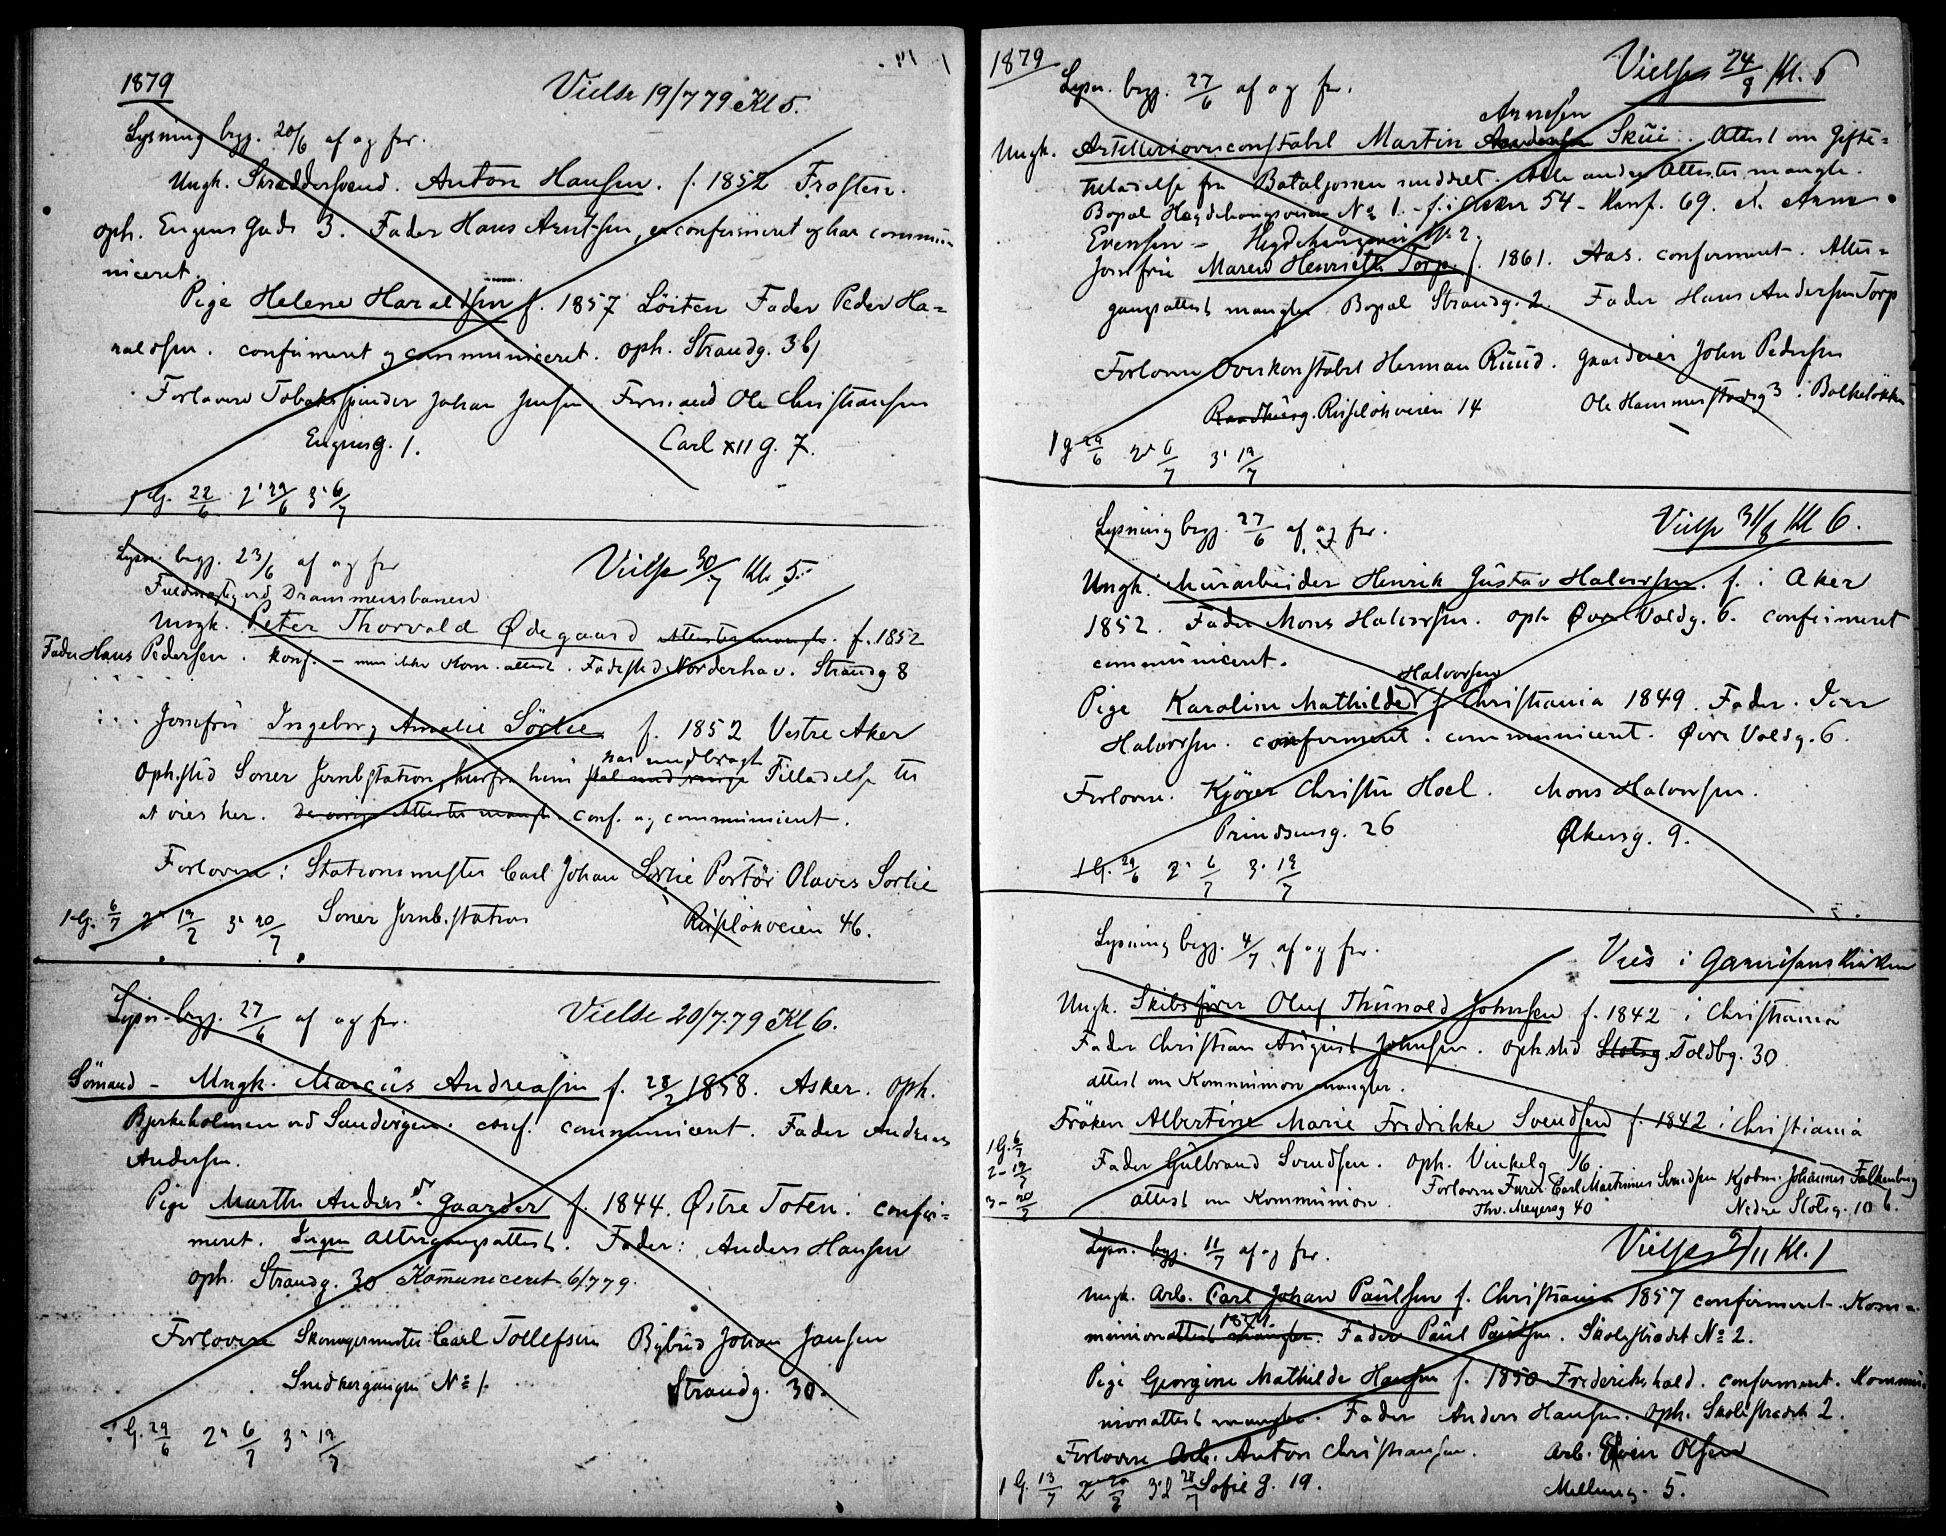 1879
Vielse 19/7 79 Kl 5.
Lysning beg. 20/6 af og fr.
Ungk. Skræddersvend. Anton Hansen. f. 1852 Frosten.
oph. Engens Gade 3. Fader Hans Arntsen, er confirmeret og har commu-
niceret.
Pige Helene Haraldsen f. 1857 Löiten Fader Peder Ha-
raldsen. confirmeret og communiceret. oph. Strandg. 36
Forlovere Tobakspinder Johan Jensen Ole Christiansen
Engensg. 1. Carl XII g. 7.
1 G. 22/6 2' 29/6 3' 6/7
Lysn. beg. 23/6 af og fr
Vielse 30/7 Kl. 5.
Fuldmægtig ved Drammensbanen
Ungk. Peter Thorvald Ødegaard Attester mangle. f. 1852
Fader Hans Pedersen. konf. - men ikke Kom. attest. Fødested Norderhav. Strandg 8
Jomfru Ingeborg Amalie Sörlie f. 1852 Vestre Aker
har medbragt
Oph.sted Soner Jernb.station, hvorfra hun skal medbringe Tilladelse til
at vies her. De øvrige Attester mangle. conf. og communiceret.
Forlovere: Stationsmester Carl Johan Sörlie Portör Olaves Sorlie
1 G. 6/7 2' 13/7 3' 20/7 Soner Jernb.station Ruselökveien 46.
Lysn. beg. 27/6 af og fr.
Vielse 20/7.79 Kl 6.
Sömand - Ungk. Marcus Andreasen f. 28/2 1858. Asker. oph.
Bjerkeholmen ved Sandvigen. conf. communiceret. Fader Andreas
Andersen.
Pige Marthe Andersdr Gaarder f. 1844. Østre Toten. confir-
meret. Ingen Altergangsattest. Fader: Anders Hansen
oph. Strandg. 30 Komuniceret 6/7 79.
Forlovere Skomagermester Carl Tollefsen Bybud Johan Jansen
Snedkergangen No 1. Strandg. 30.
1 G. 29/6 2' 6/7 3' 13/7
1879
Lysn. beg. 27/6 af og fr.
Vielse 24/8 Kl. 6
Arnesen
Ungk. Artilleriovercon­stabel Martin Andersen Skui. Attest om Gifte-
tilladelse fra Bataljonen meddelt. Alle andre Attester mangle.
Bopæl Hegdehaugsveien No 1. - f. i Asker 54 - Konf. 69. Arne
Evensen - Hegdehaugsvei No 2.
Jomfru Maren Henriette Torp f. 1861. Aas. confirmeret. Alter-
gangsattest mangler Bopæl Strandg. 2. Fader Hans Andersen Torp
Forlovere Overkonstabel Herman Ruud. Gaardeier John Pedersen
Ruselökveien 14 Ole Hammerstadsg 3. Balkeløkken
1 g 29/6 2' 6/7 3' 13/7
Lysning beg. 27/6 af og fr.
Vielse 31/8 Kl 6.
Ungk. Murarbeider Henrik Gustav Halvorsen. f. i Aker
1852. Fader Mons Halvorsen. oph. Øvre Voldg. 6. confirmeret
communiceret.
Halvorsen
Pige Karoline Mathilde f. Christiania 1849. Fader. Iver
Halvorsen. confirmeret. communiceret. Øvre Voldg. 6.
Forlovere. Kjører Christen Hoel. Mons Halvorsen.
Prindsensg. 26 Akersg. 9.
1 G. 29/6 2' 6/7 3' 13/7
Lysning beg. 4/7 af og fr.
Vies i Garnisonskirken
Ungk. Skibsfører Oluf Thunold Johnsen f. 1842 i Christiania
Fader Christian August Johnsen. oph.sted Slotsg. Toldbg. 30
attest om Kommunion mangler.
Fröken Albertine Marie Fredrikke Svendsen f. 1842 i Christiania
1 G. 6/7
2 - 13/7
3 - 20/7
Fader Gulbrand Svendsen. oph. Vinkelg 16.
Forlovere Furer Carl Martinius Svendsen Kjøbm. Johannes Falkenberg
attest om Kommunion. Thv. Meyersg 40 Nedre Slotsg. 10 b.
Lysn. beg. 11/7 af og fr.
Vielse 9/11 Kl. 1
Ungk. Arb. Carl Johan Paulsen f. Christiania 1857 confirmeret. Kom-
munionattest mangler. Fader Paul Paulsen. Skolestrædet No 2.
Pige Georgine Mathilde Hansen f. 1850 Frederikshald. confirmeret. Kommu-
nionattest mangler. Fader Anders Hansen. oph. Skolestrædet 2.
Forlovere Arb. Anton Christiansen. Arb. Even Olsen
1 G. 13/7 2 20/7 3' 27/7 Sofie g. 19. Mellemg. 5.